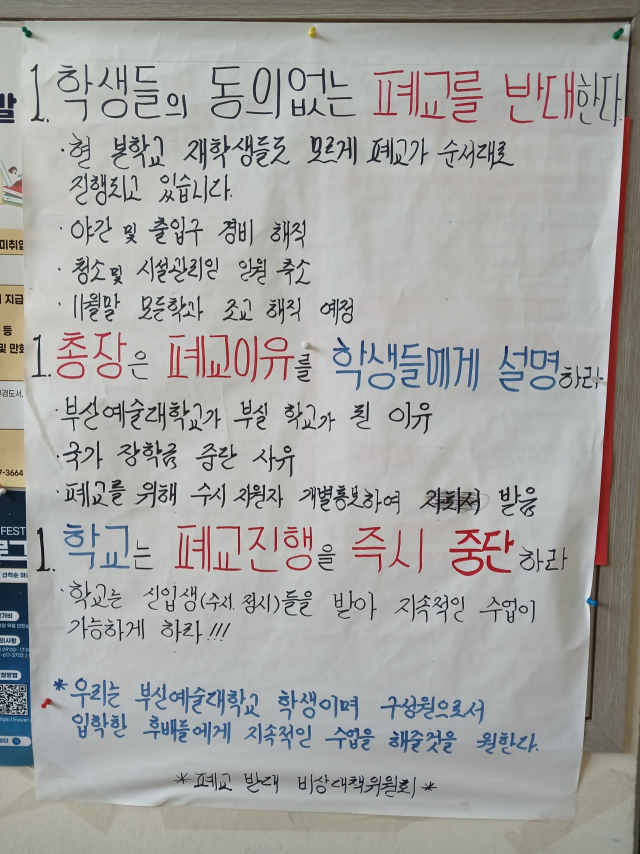 1. 학생들의 동의없는 폐교를 반대한다.
· 현 본학교 재학생들도 모르게 폐교가 순서대로
진행되고 있습니다.
· 야간 및 출입구 경비 해직
· 청소 및 시설관리인 인원 축소
· 11월말 모든학과 조교 해직 예정
1. 총장은 폐교이유를 학생들에게 설명하라
· 부산예술대학교가 부실 학교가 된 이유
· 국가 장학금 중단 사유
· 폐교를 위해 수시 지원자 개별통보하여 받음
1. 학교는 폐교진행을 즉시 중단하라
· 학교는 신입생(수시. 정시)들을 받아 지속적인 수업이
가능하게 하라!!!
* 우리는 부산예술대학교 학생이며 구성원으로서
입학한 후배들에게 지속적인 수업을 해줄것을 원한다.
* 폐교 반대 비상대책위원회 *
말
미취업
지급
등
및 만화
7-3664
FEST
선착순